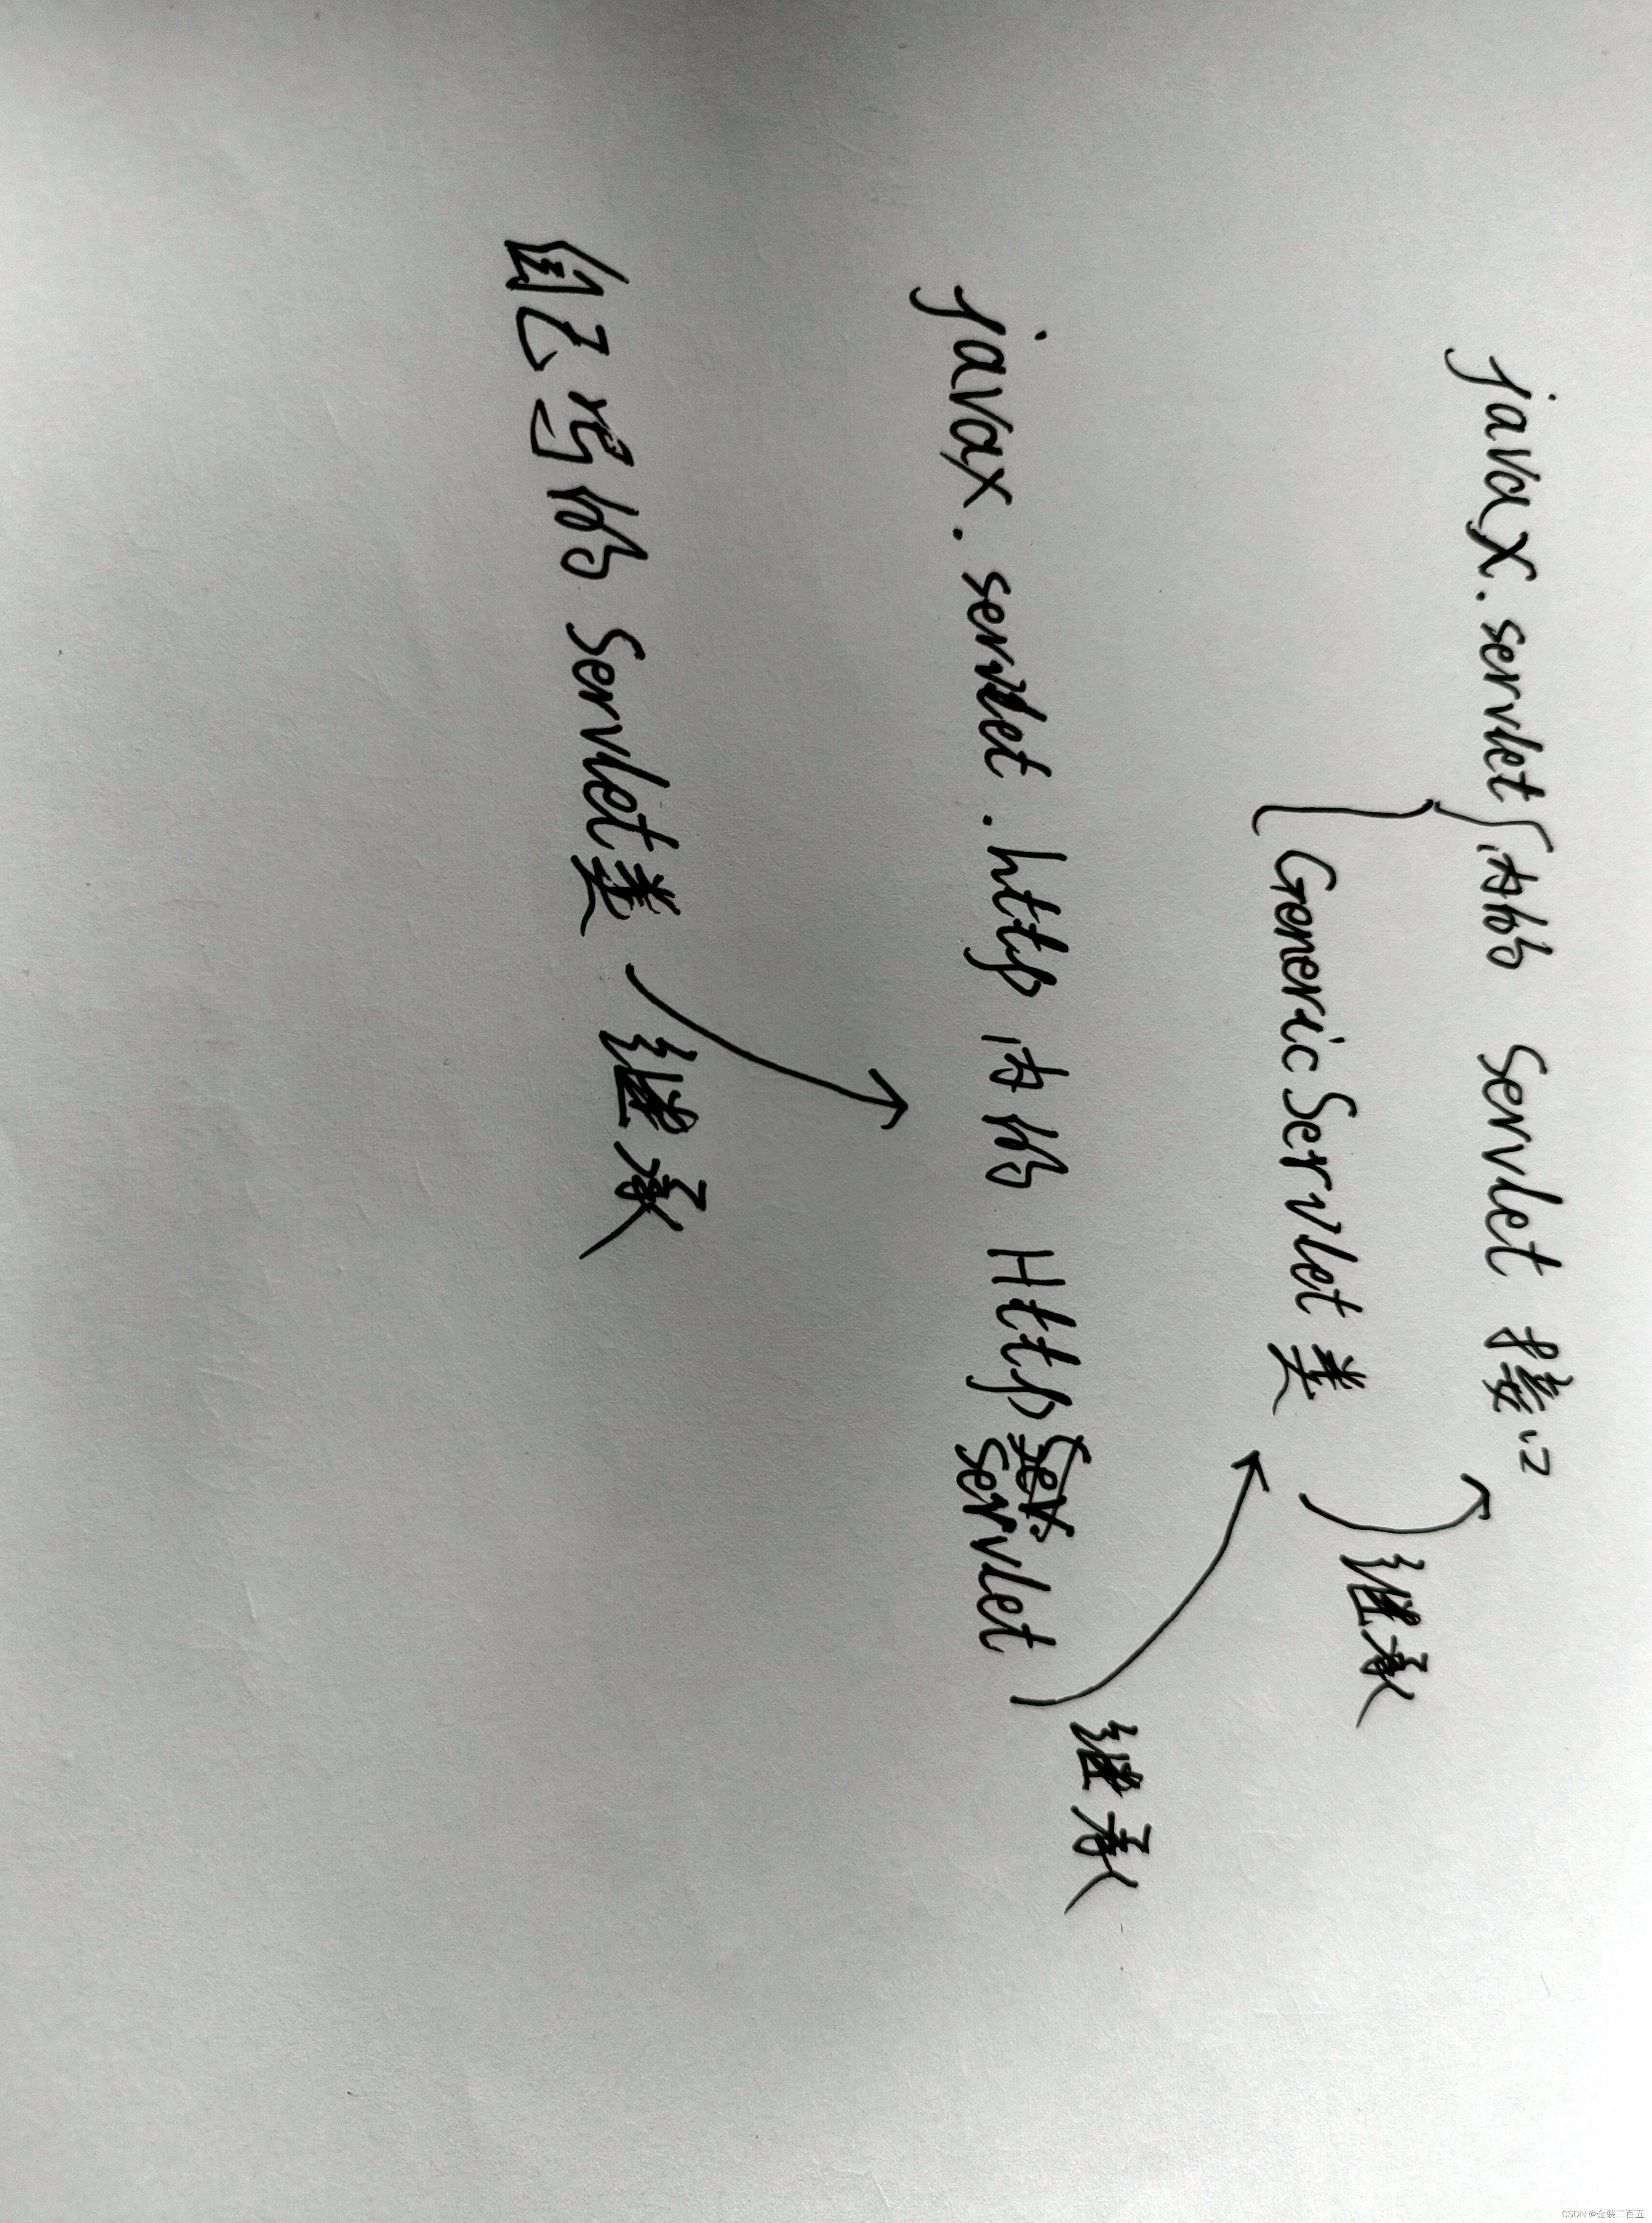 javax.servlet { 内的 Servlet 接口
GenericServlet 类
继承
javax.servlet.http 内的 HttpServlet
继承
自己写的 Servlet类
继承
CSDN @金装二百五